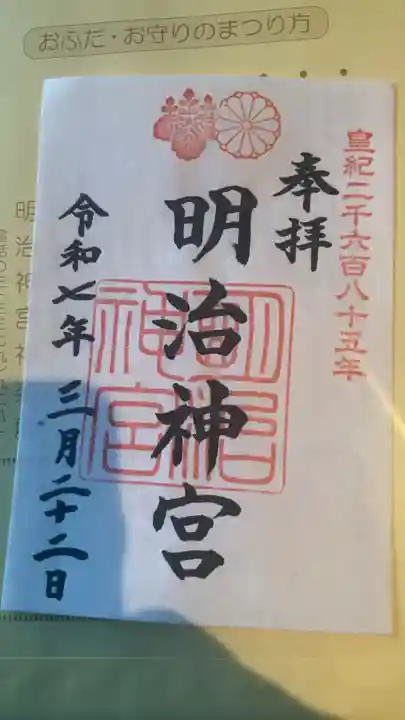 おふだ・お守りのまつり方
皇紀二千六百八十五年
奉拝
明治神宮
明治神宮
令和七年 三月二十二日
明治神宮